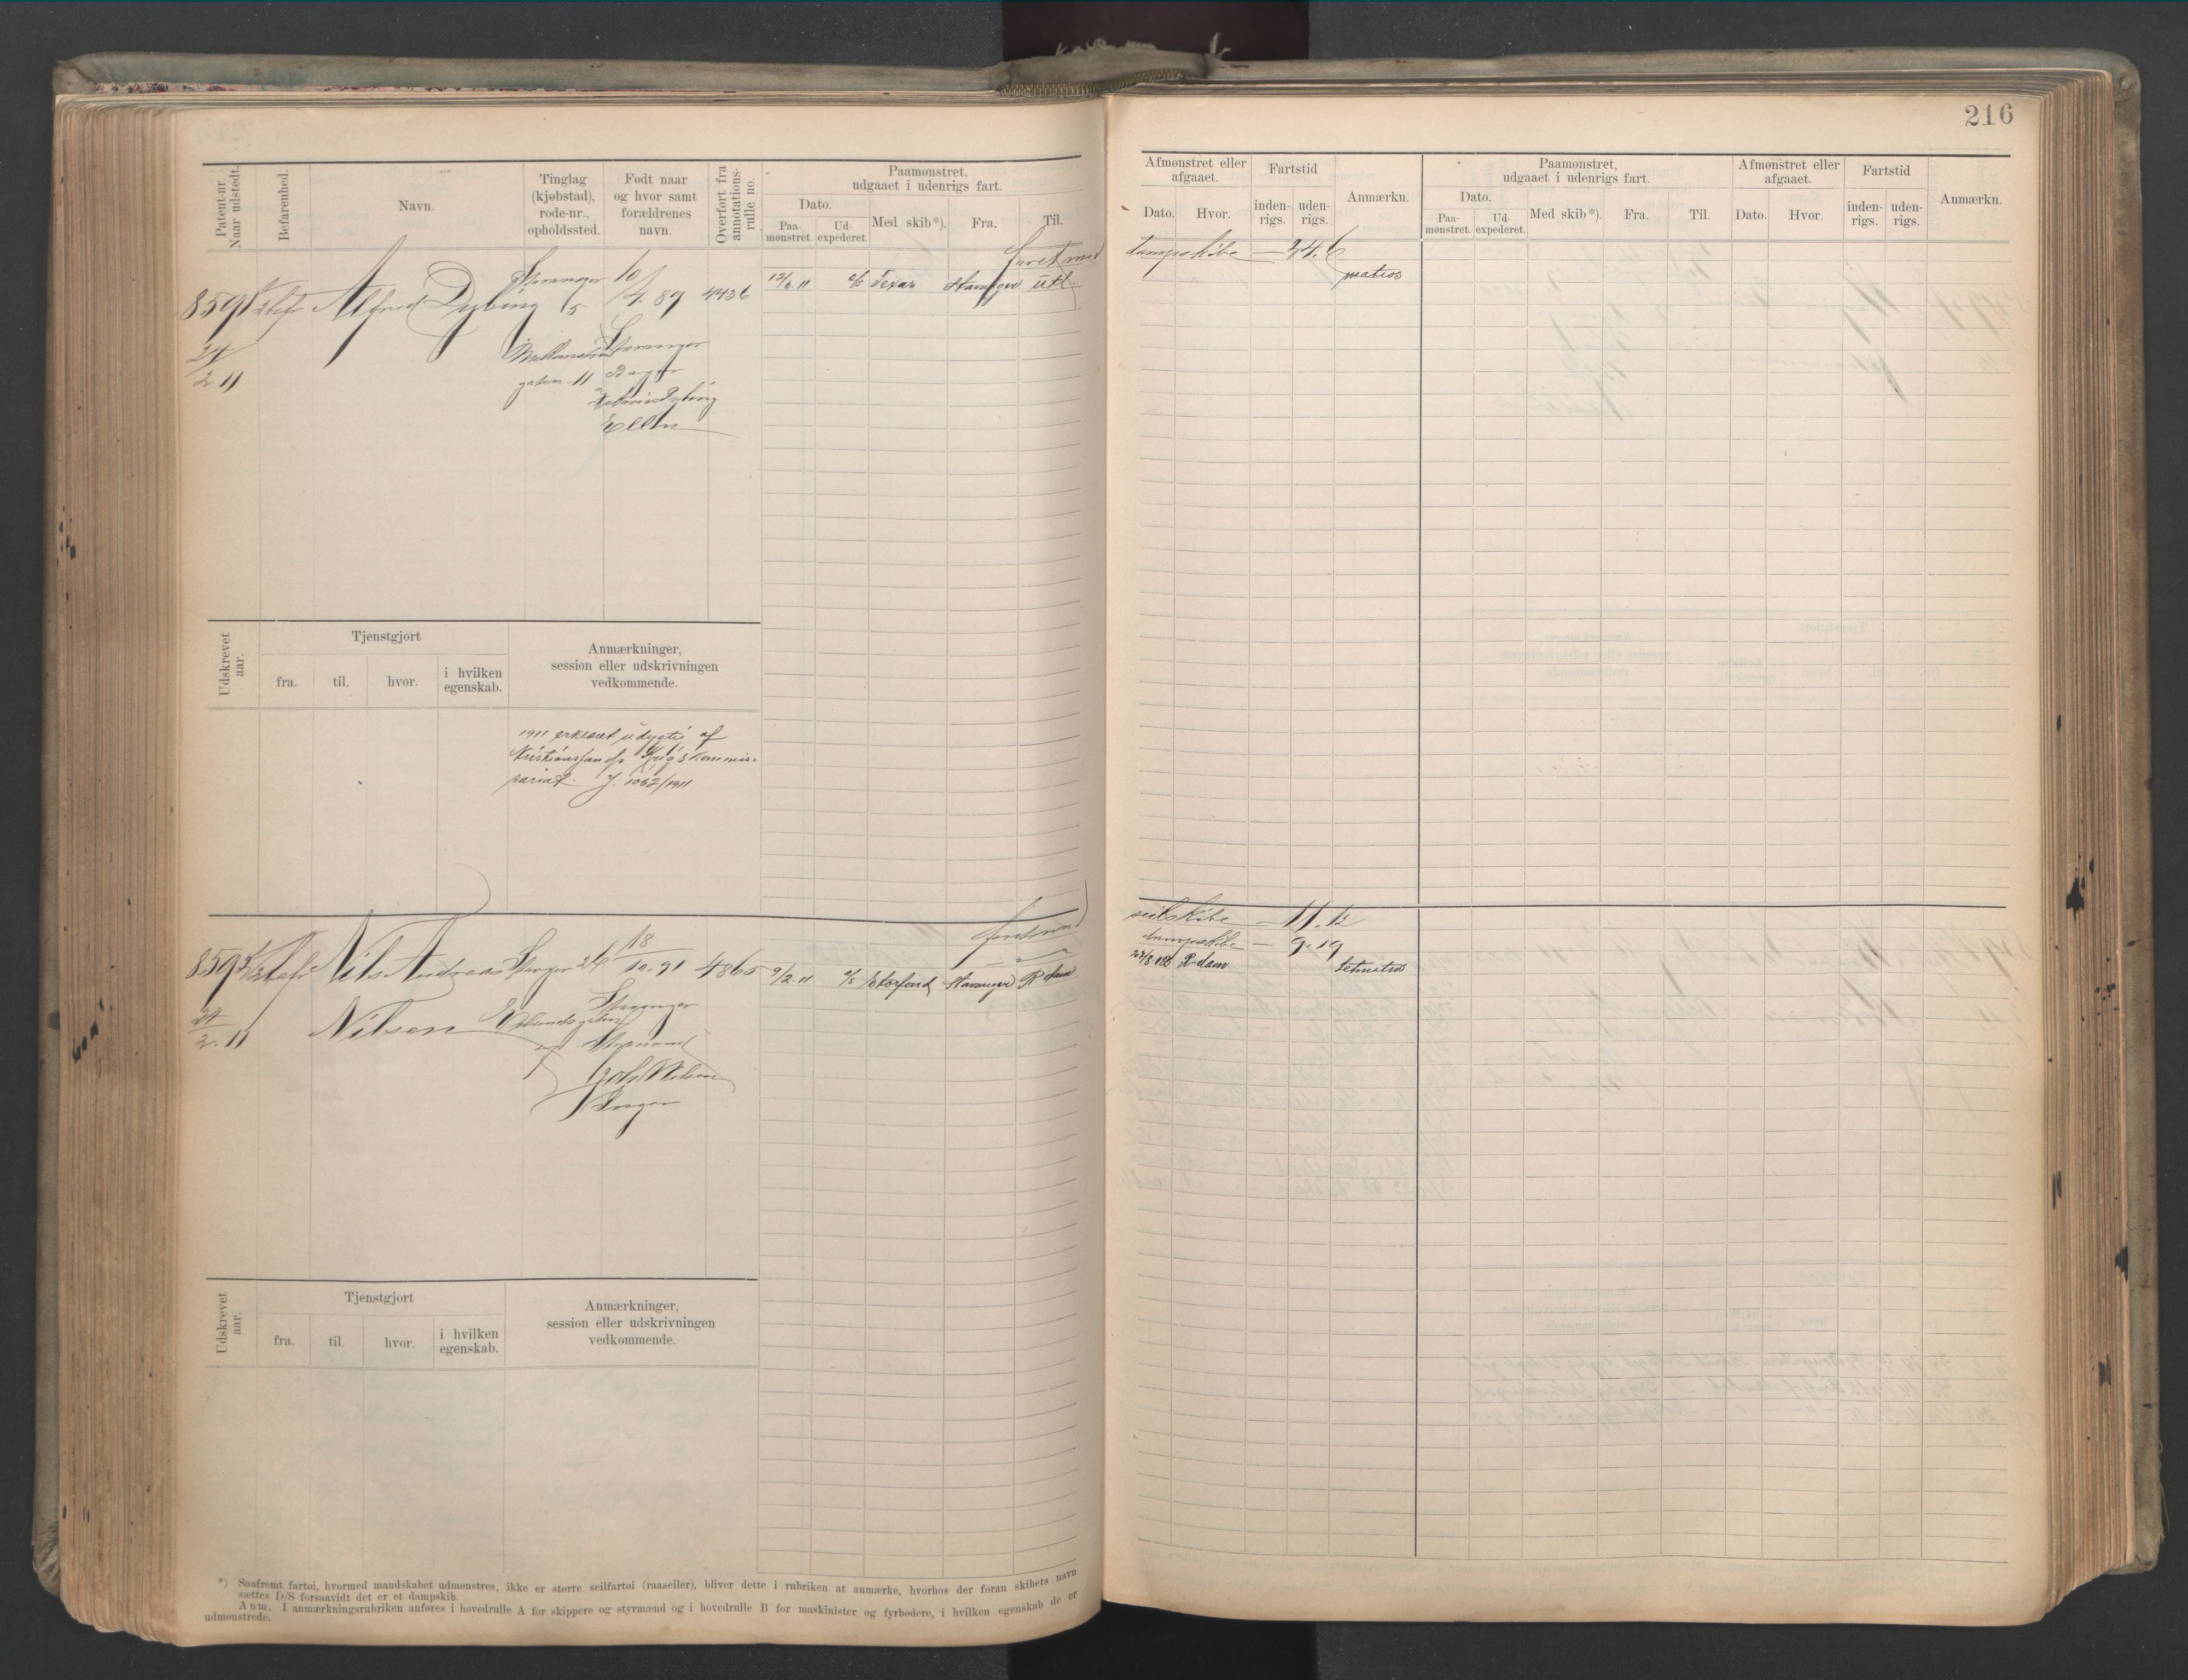 216
Patent-nr.
Naar udstedt.
Befarenhed.
Navn.
Tinglag
(kjøbstad),
rode-nr.,
opholdssted.
Født naar
og hvor samt
forældrenes
navn.
Overført fra
annotations-
rulle no.
Paamønstret,
udgaaet i udenrigs fart.
Dato.
Paa-
mønstret.
Ud-
expederet.
Med skib*).
Fra.
Til.
Afmønstret eller
afgaaet.
Dato.
Hvor.
Fartstid
inden-
rigs.
uden-
rigs.
Anmærkn.
Paamønstret,
udgaaet i udenrigs fart.
Dato.
Paa-
mønstret.
Ud-
expederet.
Med skib*).
Fra.
Til.
Afmønstret eller
afgaaet.
Dato.
Hvor.
Fartstid
inden-
rigs.
uden-
rigs.
Anmærkn.
faret med
dampskibe — 34.6
8591 Alfred Dybing
Stavanger 5
10/4. 89
4436
12/6 11 Texas Stavanger utl.
matros
24/2 11
gaten 11
Stavanger
Dybing
Ellen
Udskrevet
aar.
Tjenstgjort
fra.
til.
hvor.
i hvilken
egenskab.
Anmærkninger,
session eller udskrivningen
vedkommende.
1911 erklæret udygtig af
Kristianssands Krigskommis-
sariat. J. 1052/1911
faret med
seilskibe — 11.12
dampskibe — 9.19
Nils Andreas
Nilsen
Stavanger
18/10. 91
4865
9/2 11 Storfond Stavanger R-dam
R-dam Letmatros
24/2. 11
Stavanger
Nilsen
Inger
Udskrevet
aar.
Tjenstgjort
fra.
til.
hvor.
i hvilken
egenskab.
Anmærkninger,
session eller udskrivningen
vedkommende.
*) Saafremt fartøi, hvormed mandskabet udmønstres, ikke er større seilfartøi (raaseiler), bliver dette i rubriken at anmærke, hvorhos der foran skibets navn
sættes D/S forsaavidt det er et dampskib.
Anm. I anmærkningsrubriken anføres i hovedrulle A for skippere og styrmænd og i hovedrulle B for maskinister og fyrbødere, i hvilken egenskab de er
udmønstrede.